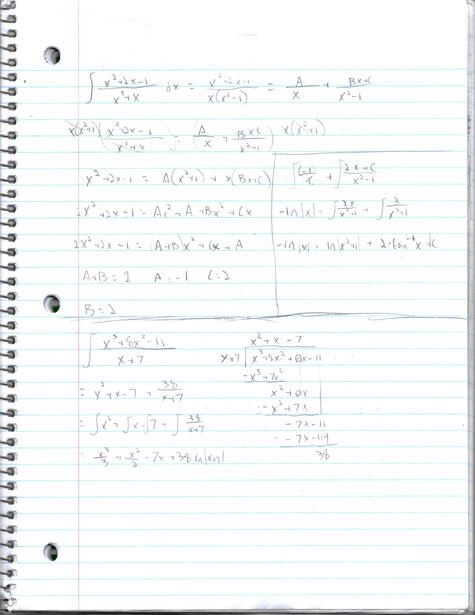 ∫ x²+2x-1 / x³+x dx = x²+2x-1 / x(x²-1) = A/x + Bx+C / x²-1
x(x²+1) ( x²+2x-1 / x³+x ) = ( A/x + Bx C / x²+1 ) x(x²+1)
x²+2x-1 = A(x²+1) + x(Bx+C)
x²+2x-1 = Ax²+A+Bx²+Cx
x²+2x-1 = (A+B)x²+Cx+A
A+B=1 A=-1 C=2
B=2
∫ (-1)/x + ∫ 2x+C / x²-1
-ln|x| + ∫ 2x / x²+1 + ∫ 2 / x²+1
-ln|x| + ln|x²+1| + 2·tan⁻¹x + C
∫ x³+8x²-11 / x+7
= x²+x-7 + 38 / x+7
= ∫x² + ∫x - ∫7 + ∫ 38 / x+7
= x³/3 + x²/2 - 7x + 38 ln|x+7|
x²+x-7
x+7 x³+8x²+0x-11
-x³+7x²
x²+0x
-x²+7x
-7x-11
- -7x-49
38